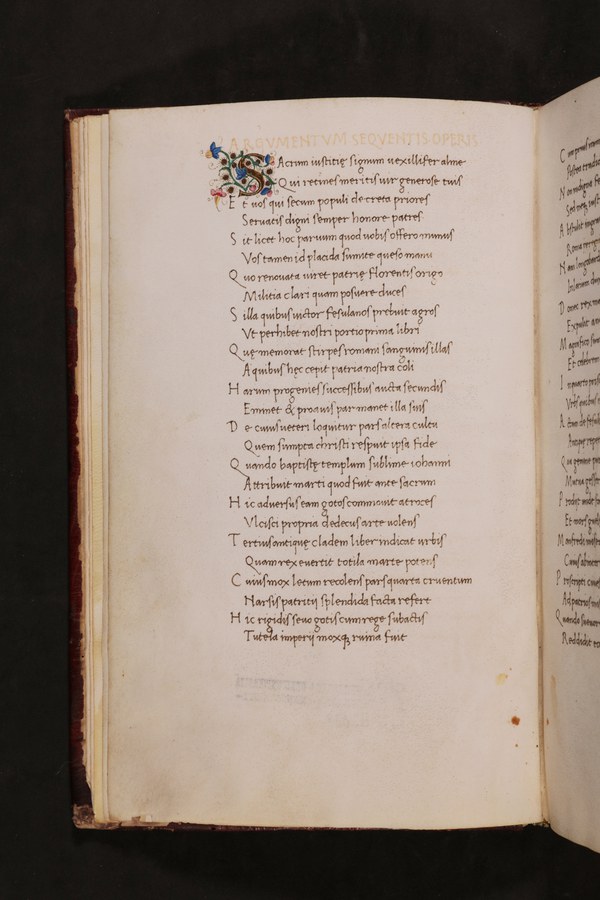 ARGVMENTVM SEQVENTIS OPERIS
SAcrum iustitię signum uexillifer alme
Qui retines meritis uir generose tuis
Et uos qui secum populi decreta priores
Seruatis digni semper honore patres
Sit licet hoc paruum quod uobis offero munus
Vos tamen id placida sumite queso manu
Quo renouata uiret patrię florentis origo
Militia clari quam posuere duces
Silla quibus uictor fesulanos prebuit agros
Vt perhibet nostri portio prima libri
Quę memorat stirpes romani sanguinis illas
A quibus hęc cepit patria nostra coli
Harum progenies successibus aucta secundis
Eminet & proauis par manet illa suis
De cuius ueteri loquitur pars altera cultu
Quem sumpta christi respuit ipsa fide
Quando baptistę templum sublime iohanni
Attribuit marti quod fuit ante sacrum
Hic aduersus eam gotos commouit atroces
Vlcisci propria dedecus arte uolens
Tertius antiquę cladem liber indicat urbis
Quam rex euertit totila marte potens
Cuius mox letum recolens pars quarta cruentum
Narsis patritii splendida facta refert
Hic rigidis seuo gotis cum rege subactis
Tutela imperii moxqꝫ ruina fuit